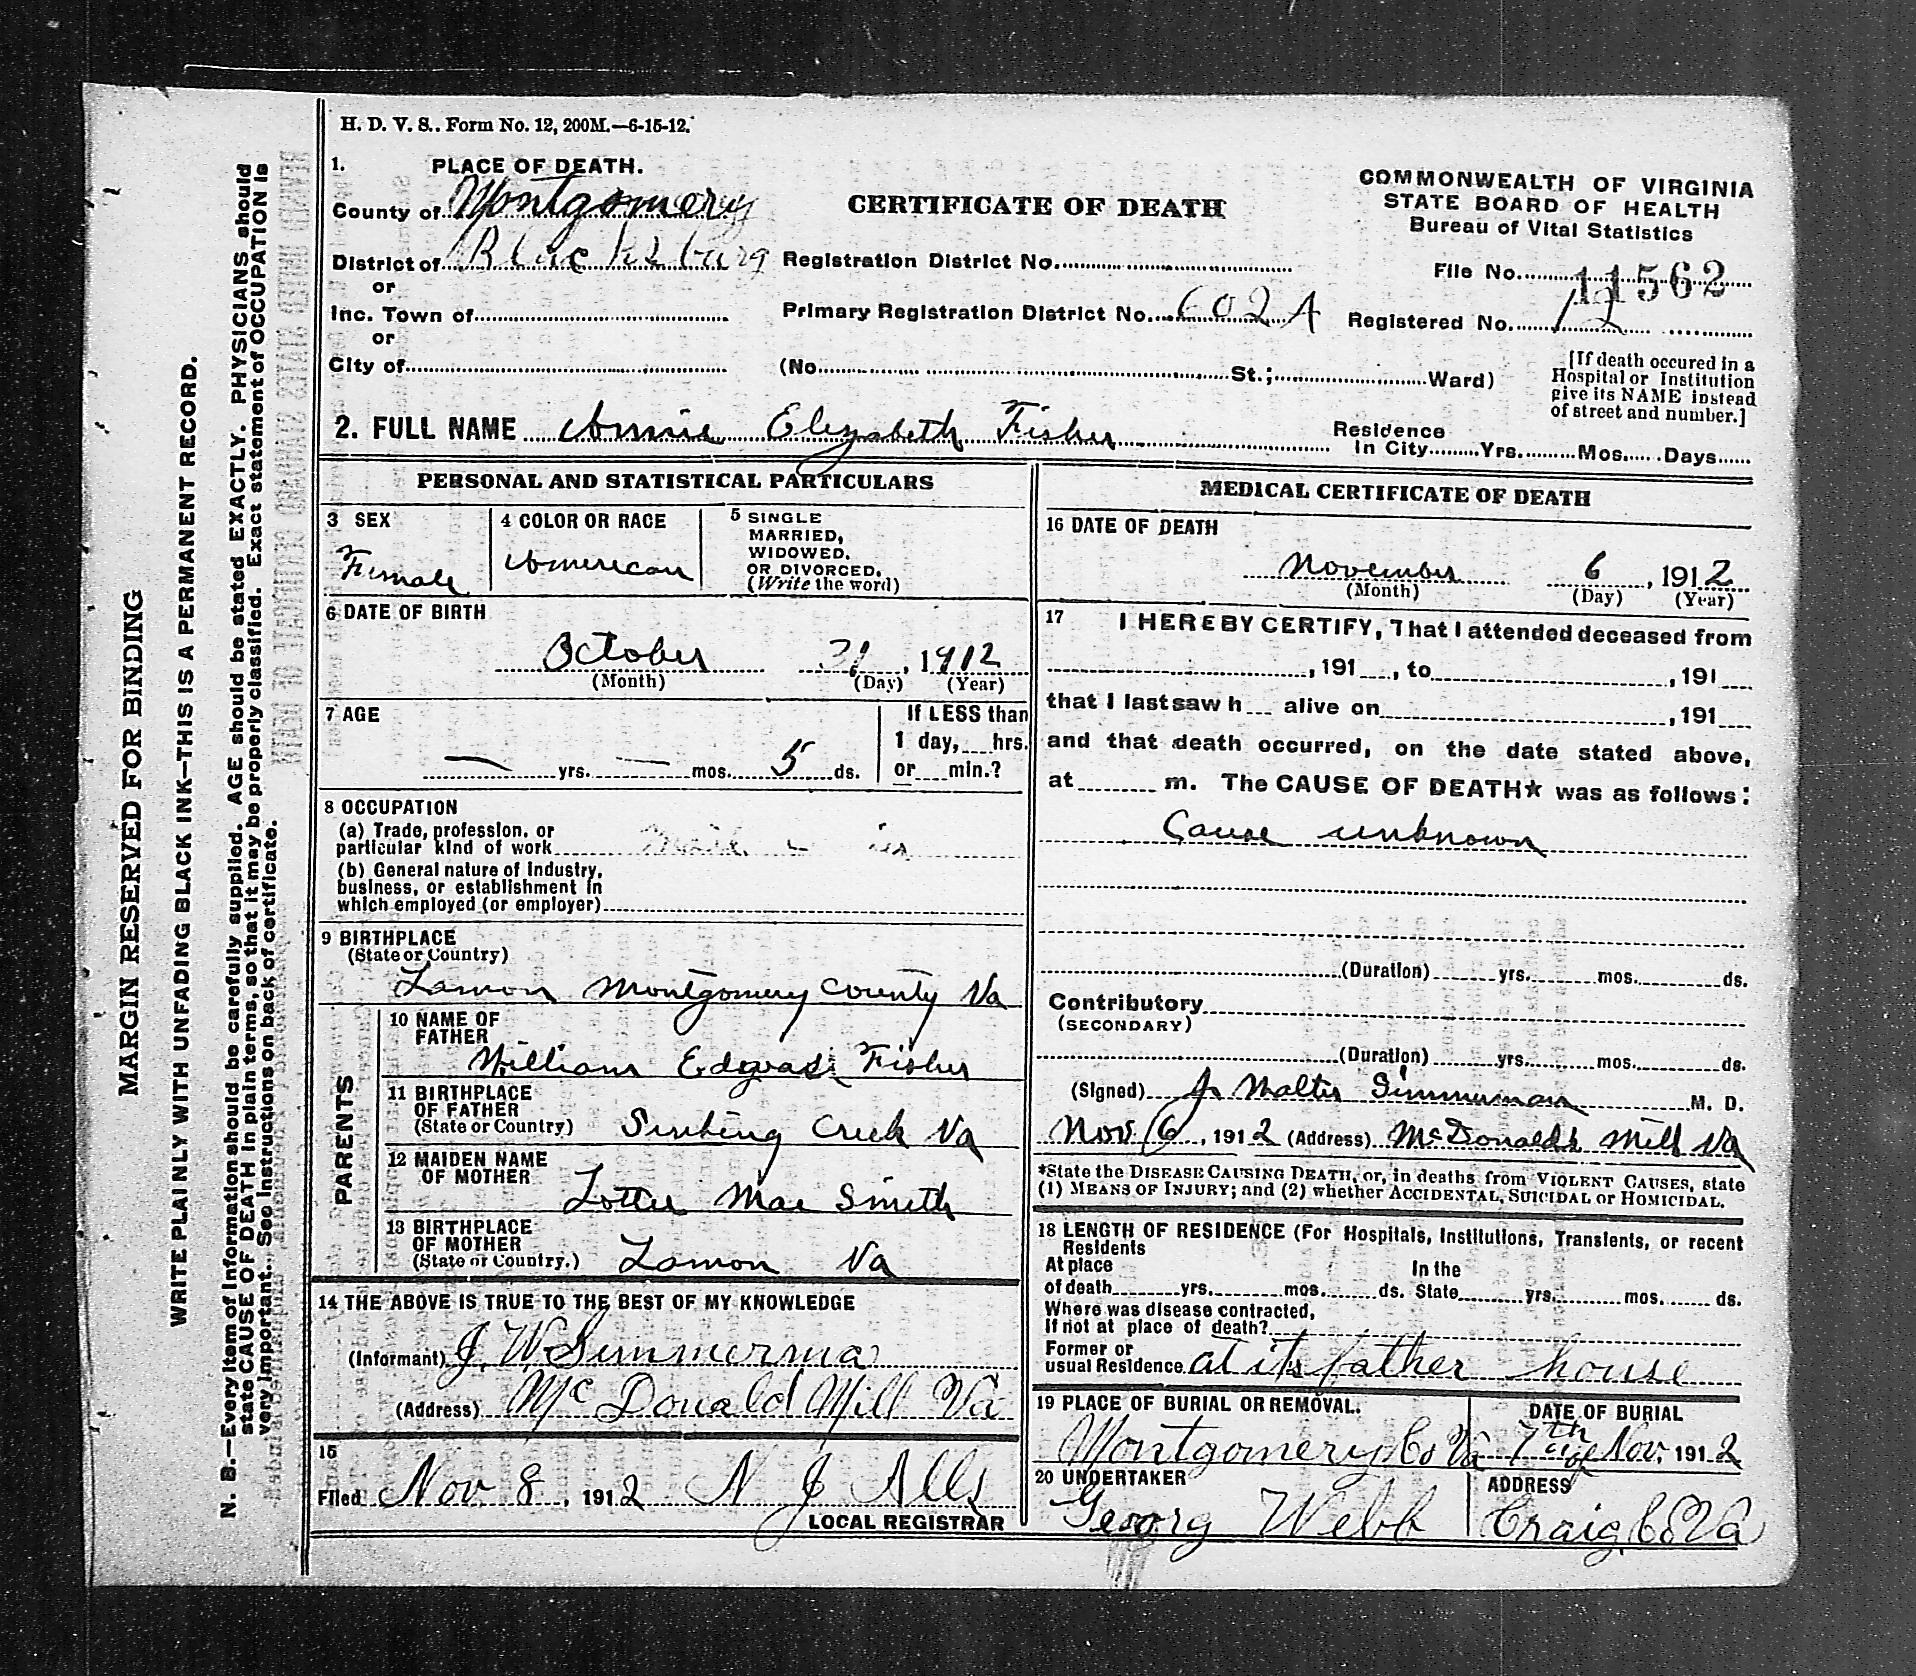 H. D. V. S.. Form No. 12, 200M.—6-15-12.
1. PLACE OF DEATH.
County of Montgomery
District of Blacksburg
or
Inc. Town of
or
City of
CERTIFICATE OF DEATH
Registration District No.
Primary Registration District No. 602 A
(No. St.; Ward)
COMMONWEALTH OF VIRGINIA
STATE BOARD OF HEALTH
Bureau of Vital Statistics
File No. 11562
Registered No. 12
[If death occured in a
Hospital or Institution
give its NAME instead
of street and number.]
2. FULL NAME Annie Elizabeth Fisher
Residence
in City Yrs. Mos. Days
PERSONAL AND STATISTICAL PARTICULARS
3 SEX
Female
4 COLOR OR RACE
American
5 SINGLE
MARRIED,
WIDOWED.
OR DIVORCED.
(Write the word)
6 DATE OF BIRTH
October 31, 1912
(Month) (Day) (Year)
7 AGE
— yrs. — mos. 5 ds.
If LESS than
1 day, hrs.
or min.?
8 OCCUPATION
(a) Trade, profession, or
particular kind of work
(b) General nature of industry,
business, or establishment in
which employed (or employer)
9 BIRTHPLACE
(State or Country)
Lamon Montgomery County Va
PARENTS
10 NAME OF
FATHER
William Edgvad Fisher
11 BIRTHPLACE
OF FATHER
(State or Country) Sinking Creek Va
12 MAIDEN NAME
OF MOTHER
Lottie Mae Smith
13 BIRTHPLACE
OF MOTHER
(State or Country.) Lamon Va
14 THE ABOVE IS TRUE TO THE BEST OF MY KNOWLEDGE
(Informant) J. W Simmerman
(Address) McDonald Mill Va
15
Filed Nov. 8, 1912 N J Alls
LOCAL REGISTRAR
MEDICAL CERTIFICATE OF DEATH
16 DATE OF DEATH
November 6, 1912
(Month) (Day) (Year)
17 I HEREBY CERTIFY, That I attended deceased from
, 191 , to , 191
that I last saw h alive on , 191
and that death occurred, on the date stated above,
at m. The CAUSE OF DEATH* was as follows:
Cause unknown
(Duration) yrs. mos. ds.
Contributory
(SECONDARY)
(Duration) yrs. mos. ds.
(Signed) J. Walter Simmerman M. D.
Nov 6, 1912 (Address) McDonalds Mill Va
*State the DISEASE CAUSING DEATH, or, in deaths from VIOLENT CAUSES, state
(1) MEANS OF INJURY; and (2) whether ACCIDENTAL, SUICIDAL or HOMICIDAL.
18 LENGTH OF RESIDENCE (For Hospitals, Institutions, Transients, or recent
Residents
At place In the
of death yrs. mos. ds. State yrs. mos. ds.
Where was disease contracted,
If not at place of death?
Former or
usual Residence at its father house
19 PLACE OF BURIAL OR REMOVAL.
Montgomery Co Va
DATE OF BURIAL
7th of Nov. 1912
20 UNDERTAKER
Georg Webb
ADDRESS
Craig Co Va
MARGIN RESERVED FOR BINDING
WRITE PLAINLY WITH UNFADING BLACK INK—THIS IS A PERMANENT RECORD.
N. B.—Every item of information should be carefully supplied. AGE should be stated EXACTLY. PHYSICIANS should
state CAUSE OF DEATH in plain terms, so that it may be properly classified. Exact statement of OCCUPATION is
very important. See instructions on back of certificate.